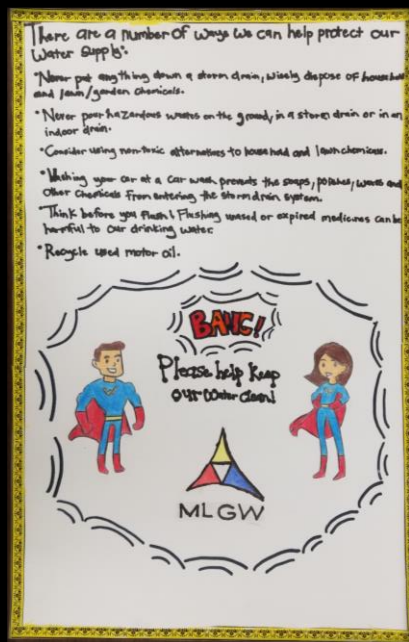 There are a number of ways we can help protect our
Water Supply:
*Never put anything down a storm drain, wisely dispose of household
and lawn/garden chemicals.
*Never pour hazardous wastes on the ground, in a storm drain or in an
indoor drain.
*Consider using non-toxic alternatives to household and lawn chemicals.
*Washing your car at a car wash prevents the soaps, polishes, waxes and
other chemicals from entering the storm drain system.
Think before you flush! Flushing unused or expired medicines can be
harmful to our drinking water.
*Recycle used motor oil.
BANG!
Please help keep
our water clean!
MLGW